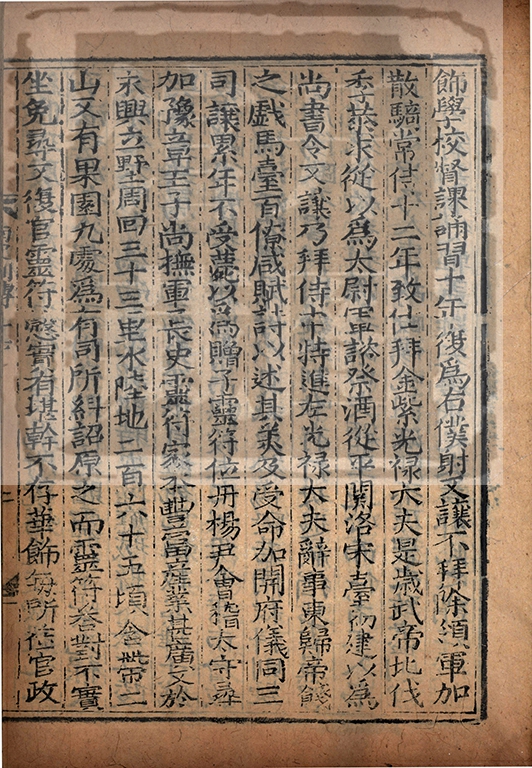 飾學校督課誦習十年復爲右僕射又讓不拜除領軍加
散騎常侍十二年致仕拜金紫光禄大夫是歳武帝北伐
季恭求從以爲太尉軍諮祭酒從平關洛宋臺初建以爲
尚書令又讓乃拜侍中特進左光禄大夫辭事東歸帝餞
之戲馬臺百僚咸賦詩以述其美及受命加開府儀同三
司讓累年不受薨以爲贈子靈符位丹楊尹會稽太守尋
加豫章王子尚撫軍長史靈符家本豐富産業甚廣又於
永興立野周回三十三里水陸地二百六十五頃含帶二
山又有果園九處爲有司所糾詔原之而靈符荅對不實
坐免尋又復官靈符慤實有堪幹不存華飾每所位官政